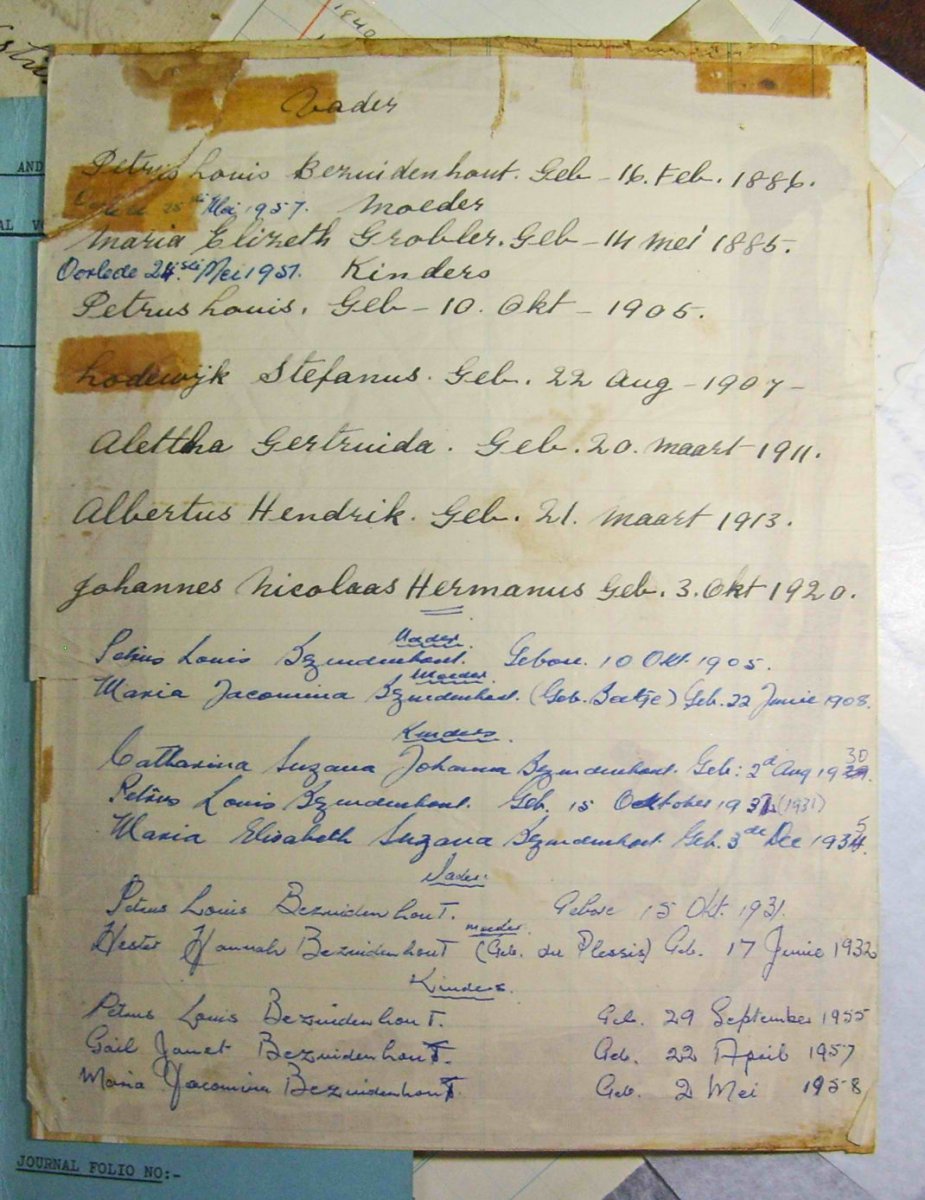 1840
AND
Vader
Petrus Louis Bezuidenhout. Geb - 16. Feb. 1886.
Mei 1957. Moeder
Maria Elizeth Grobler. Geb - 14 Mei 1885.
Oorlede 24ste Mei 1951. Kinders
Petrus Louis. Geb - 10. Okt - 1905.
Lodewijk Stefanus. Geb. 22 Aug - 1907 -
Alettha Gertruida. Geb. 20. Maart 1911.
Albertus Hendrik. Geb. 21. Maart 1913.
Johannes Nicolaas Hermanus Geb. 3. Okt 1920.
Vader.
Petrus Louis Bezuidenhout. Gebore. 10 Okt. 1905.
Moeder.
Maria Jacomina Bezuidenhout. (Geb. ) Geb. 22 Junie 1908.
Kinders.
Catharina Suzana Johanna Bezuidenhout. Geb: 2d Aug 1930.
Petrus Louis Bezuidenhout. Geb. 15 Oktober 193 (1931)
Maria Elisabeth Suzana Bezuidenhout. Geb. 3de Dec 1935.
Vader.
Petrus Louis Bezuidenhout. Gebore 15 Okt. 1931.
moeder
Hester Hannah Bezuidenhout (Geb. du Plessis) Geb. 17 Junie 1932
Kinders.
Petrus Louis Bezuidenhout. Geb. 29 September 1955
Gail Janet Bezuidenhout. Geb. 22 April 1957
Maria Jacomina Bezuidenhout Geb. 2 Mei 1958
JOURNAL FOLIO NO:-